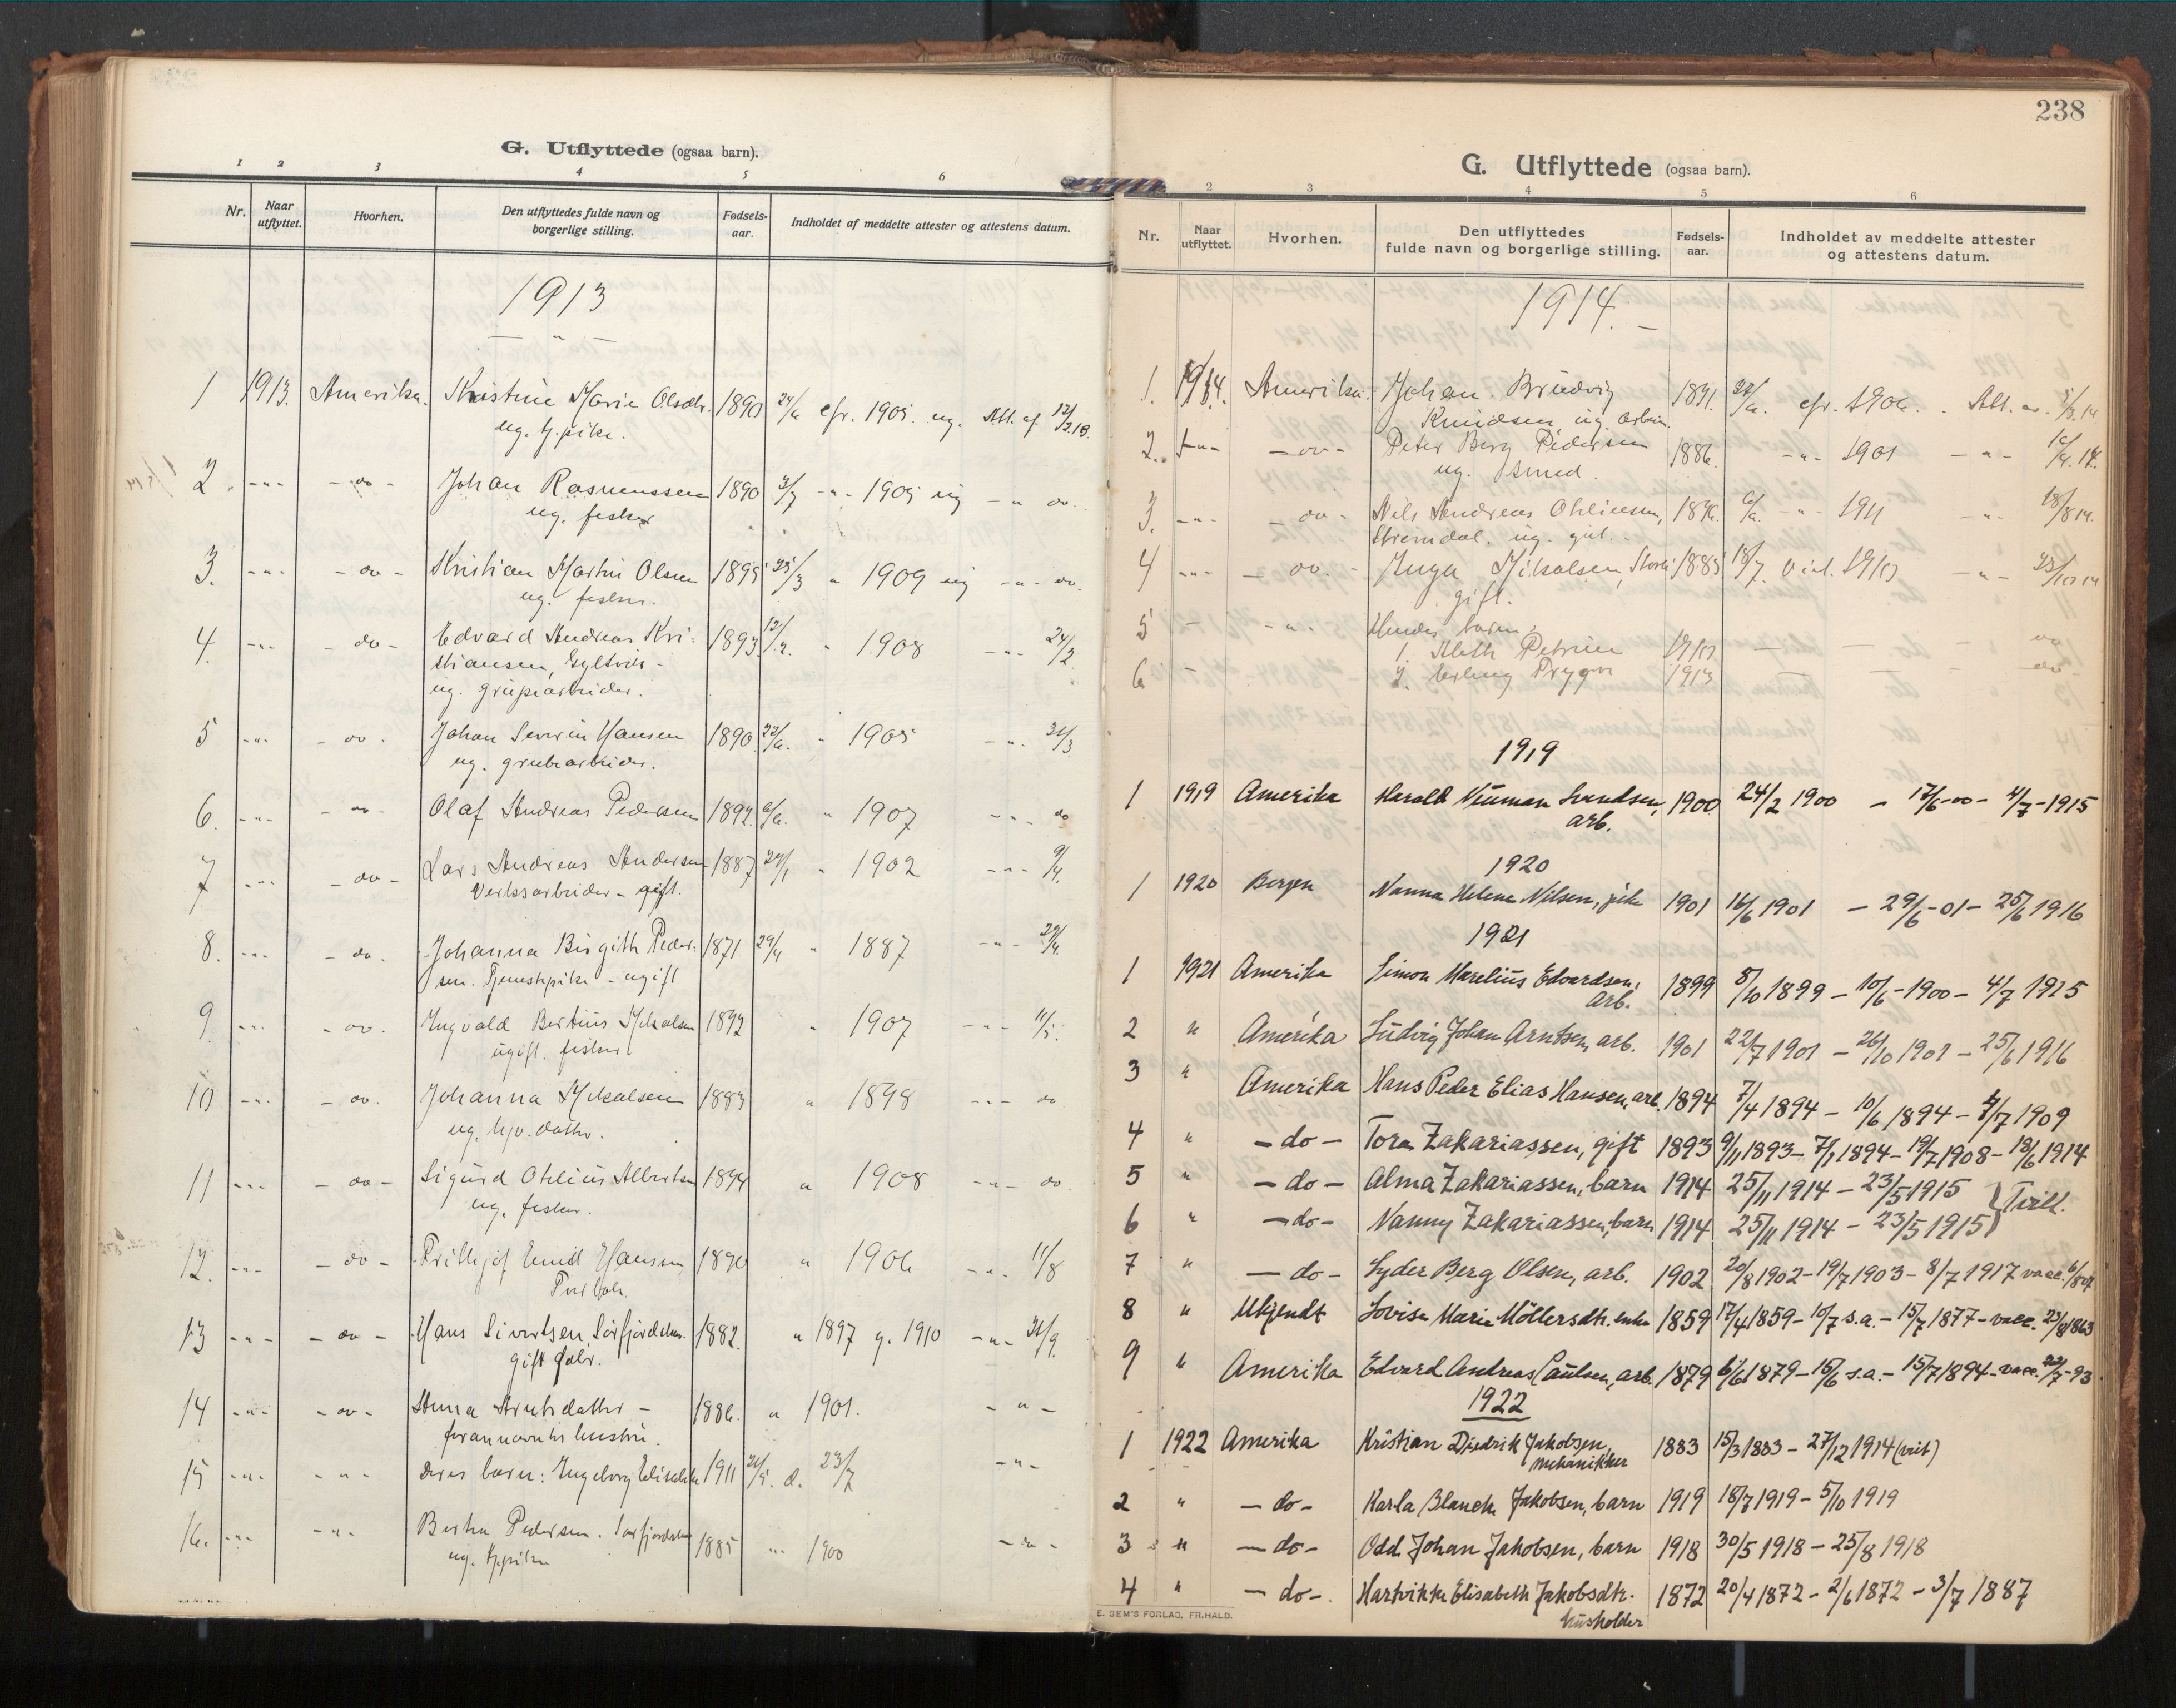 G. Utflyttede (ogsaa barn).
1 2 3 4 5 6
Nr. Naar utflyttet. Hvorhen. Den utflyttedes fulde navn og borgerlige stilling. Fødsels-aar. Indholdet af meddelte attester og attestens datum.
1913
— " —
1 1913. Amerika. Kristine Marie Olsdtr. 1890 24/6 cfr. 1905. ug. Att. af 12/2.13.
ug. tj.pike.
2 -"- - do - Johan Rasmussen 1890 2/7 -"- 1905 ug - " do.
ug. fisker
3. -"- - do - Kristian Martin Olsen 1895 25/3 " 1909 ug -"- do.
ug. fisker.
4. -"- - do - Edvard Andreas Kri- 1893. " 1908 -"- 24/2.
stiansen,
ug. grubearbeider.
5 -"- - do - Johan Severin Hansen 1890. 22/6. " 1905 -"- 31/3.
ug. grubearbeider.
6. -"- - do - Olaf Andreas Pedersen 1892. 6/6. " 1907 -"- do
7 -"- - do - Lars Andreas Andersen 1887 29/1 " 1902 -"- 9/4.
Verksarbeider - gift.
8. -"- - do. Johanna Birgith Peder- 1871 29/4 " 1887 -"- 29/4.
sen. Tjenestpike - ugift
9 -"- - do. Ingvald Bertins Mikalsen 1892 " 1907 -"- 11/5.
ugift. fisker
10 -"- - do. Johanna Mikalsen 1883 " 1898 -"- do
ug. hjv. datter.
11 -"- - do - Sigurd Othlius Albertsen 1894 " 1908 -"- do
ug. fisker.
12. -"- - do - Frithjof Emil Hansen 1890 " 1906 -"- 11/8
13 -"- - do - Hans Sivertsen Sørfjorden. 1882. " 1897 g. 1910 -"- 21/9.
gift
14 -"- - do - Anna Arntsdatter - 1886. " 1901. - " -
forannævntes hustru.
15 -"- - " - deres barn: Ingeborg 1911 d. 23/7 -"-
16. -"- - " - Berta Pedersen. 1885 -"- 1900 - " -
ug. tj.pike
238
G. Utflyttede (ogsaa barn).
2 3 4 5 6
Nr. Naar utflyttet. Hvorhen. Den utflyttedes fulde navn og borgerlige stilling. Fødsels-aar. Indholdet av meddelte attester og attestens datum.
1914.
1. 1914. Amerika. Johan Brudvig 1891. cfr. 1906. Att. av. 5/3.14.
Knudsen, ug. arbeider
2. -"- - do - Peter Berg Pedersen 1886. -"- 1901 - " - 4.14.
ug. smed.
3. -"- - do - Nils Andreas Othliessen, 1896. -"- 1911 - " - 18/8 14.
Strømdal. ug. gut.
4 -"- - do. - Inga Mikalsen, 1883 18/7. Viet. 1910 - " - 23/10 14
gift.
5 - - " - Hendes barn:
1. Aleth Petrine 1910 — do
6 - 2. Erling Trygve 1913 — do.
1919
1 1919 Amerika Harald Neuman Svendsen, 1900 24/2 1900 - 17/6-00 - 4/7-1915
arb.
1920
1 1920 Bergen Nanna Helene Nilsen, pike 1901 16/6 1901 - 29/6-01 - 25/6 1916
1921
1 1921 Amerika Simon Marelius Edvardsen, 1899 8/10 1899 - 10/6-1900 - 4/7 1915
arb.
2 " Amerika Ludvig Johan Arntsen, arb. 1901 22/7 1901 - 26/10 1901 - 25/6 1916
3 " Amerika Hans Peder Elias Hansen, arb. 1894 7/4 1894 - 10/6 1894 - 4/7 1909
4 " - do - Tora Zakariassen, gift 1893 9/11 1893 - 7/1 1894 - 19/7 1908 - 18/6 1914
5 " - do - Alma Zakariassen, barn 1914 25/11 1914 - 23/5 1915 } Tvill.
6 " - do - Nanny Zakariassen, barn 1914 25/11 1914 - 23/5 1915
7 " - do - Lyder Berg Olsen, arb. 1902 20/8 1902 - 19/7 1903 - 8/7 1917 vacc.
8 " Ukjendt Lovise Marie Möllersdtr. enke 1859 17/4 1859 - 10/7 s.a. - 15/7 1877 - vacc. 23/8 1863
9 " Amerika Edvard Andreas Paulsen, arb. 1879 6/6 1879 - 15/6 s.a. - 15/7 1894 - vacc. 22/7-93
1922
1 1922 Amerika Kristian Diedrik Jakobsen, 1883 15/3 1883 - 27/12 1914 (viet)
mekanikker
2 " - do - Karla Blanch Jakobsen, barn 1919 18/7 1919 - 5/10 1919
3 " - do - Odd Johan Jakobsen, barn 1918 30/5 1918 - 25/8 1918
4 " - do - Hartvikke Elisabeth Jakobsdtr. 1872 20/4 1872 - 2/6 1872 - 3/7 1887
husholder
E. SEM'S FORLAG, FR.HALD.